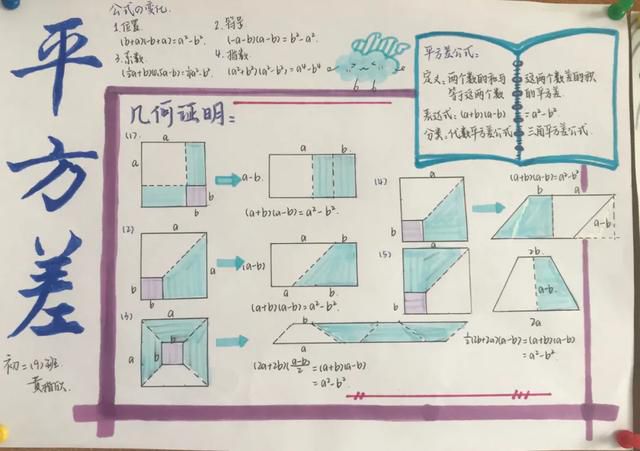 平方差
公式の变化:
1.位置.
(b+a)(-b+a)=a²-b².
2.符号
(-a-b)(a-b)=b²-a².
3.系数
4.指数
(a²+b²)(a²-b²)=a⁴-b⁴
平方差公式:
定义:两个数的和与这两个数差的积
等于这两个数的平方差.
表达式:(a+b)(a-b)=a²-b²
分类:代数平方差公式 三角平方差公式.
几何证明:
(1).
a
a
b
b
a-b.
a
b
(a+b)(a-b)=a²-b².
(2)
a
a
b
b
(a-b)
b
a
(a+b)(a-b)=a²-b².
(3)
a
b
b
b
a
(2a+2b)(a-b)/2=(a+b)(a-b)
=a²-b²
(4)
a
b
(a+b)(a-b)=a²-b²
b
a
a-b
(5)
b
2b
a-b.
2a
½(2b+2a)(a-b)=(a+b)(a-b)
=a²-b²
初二(9)班